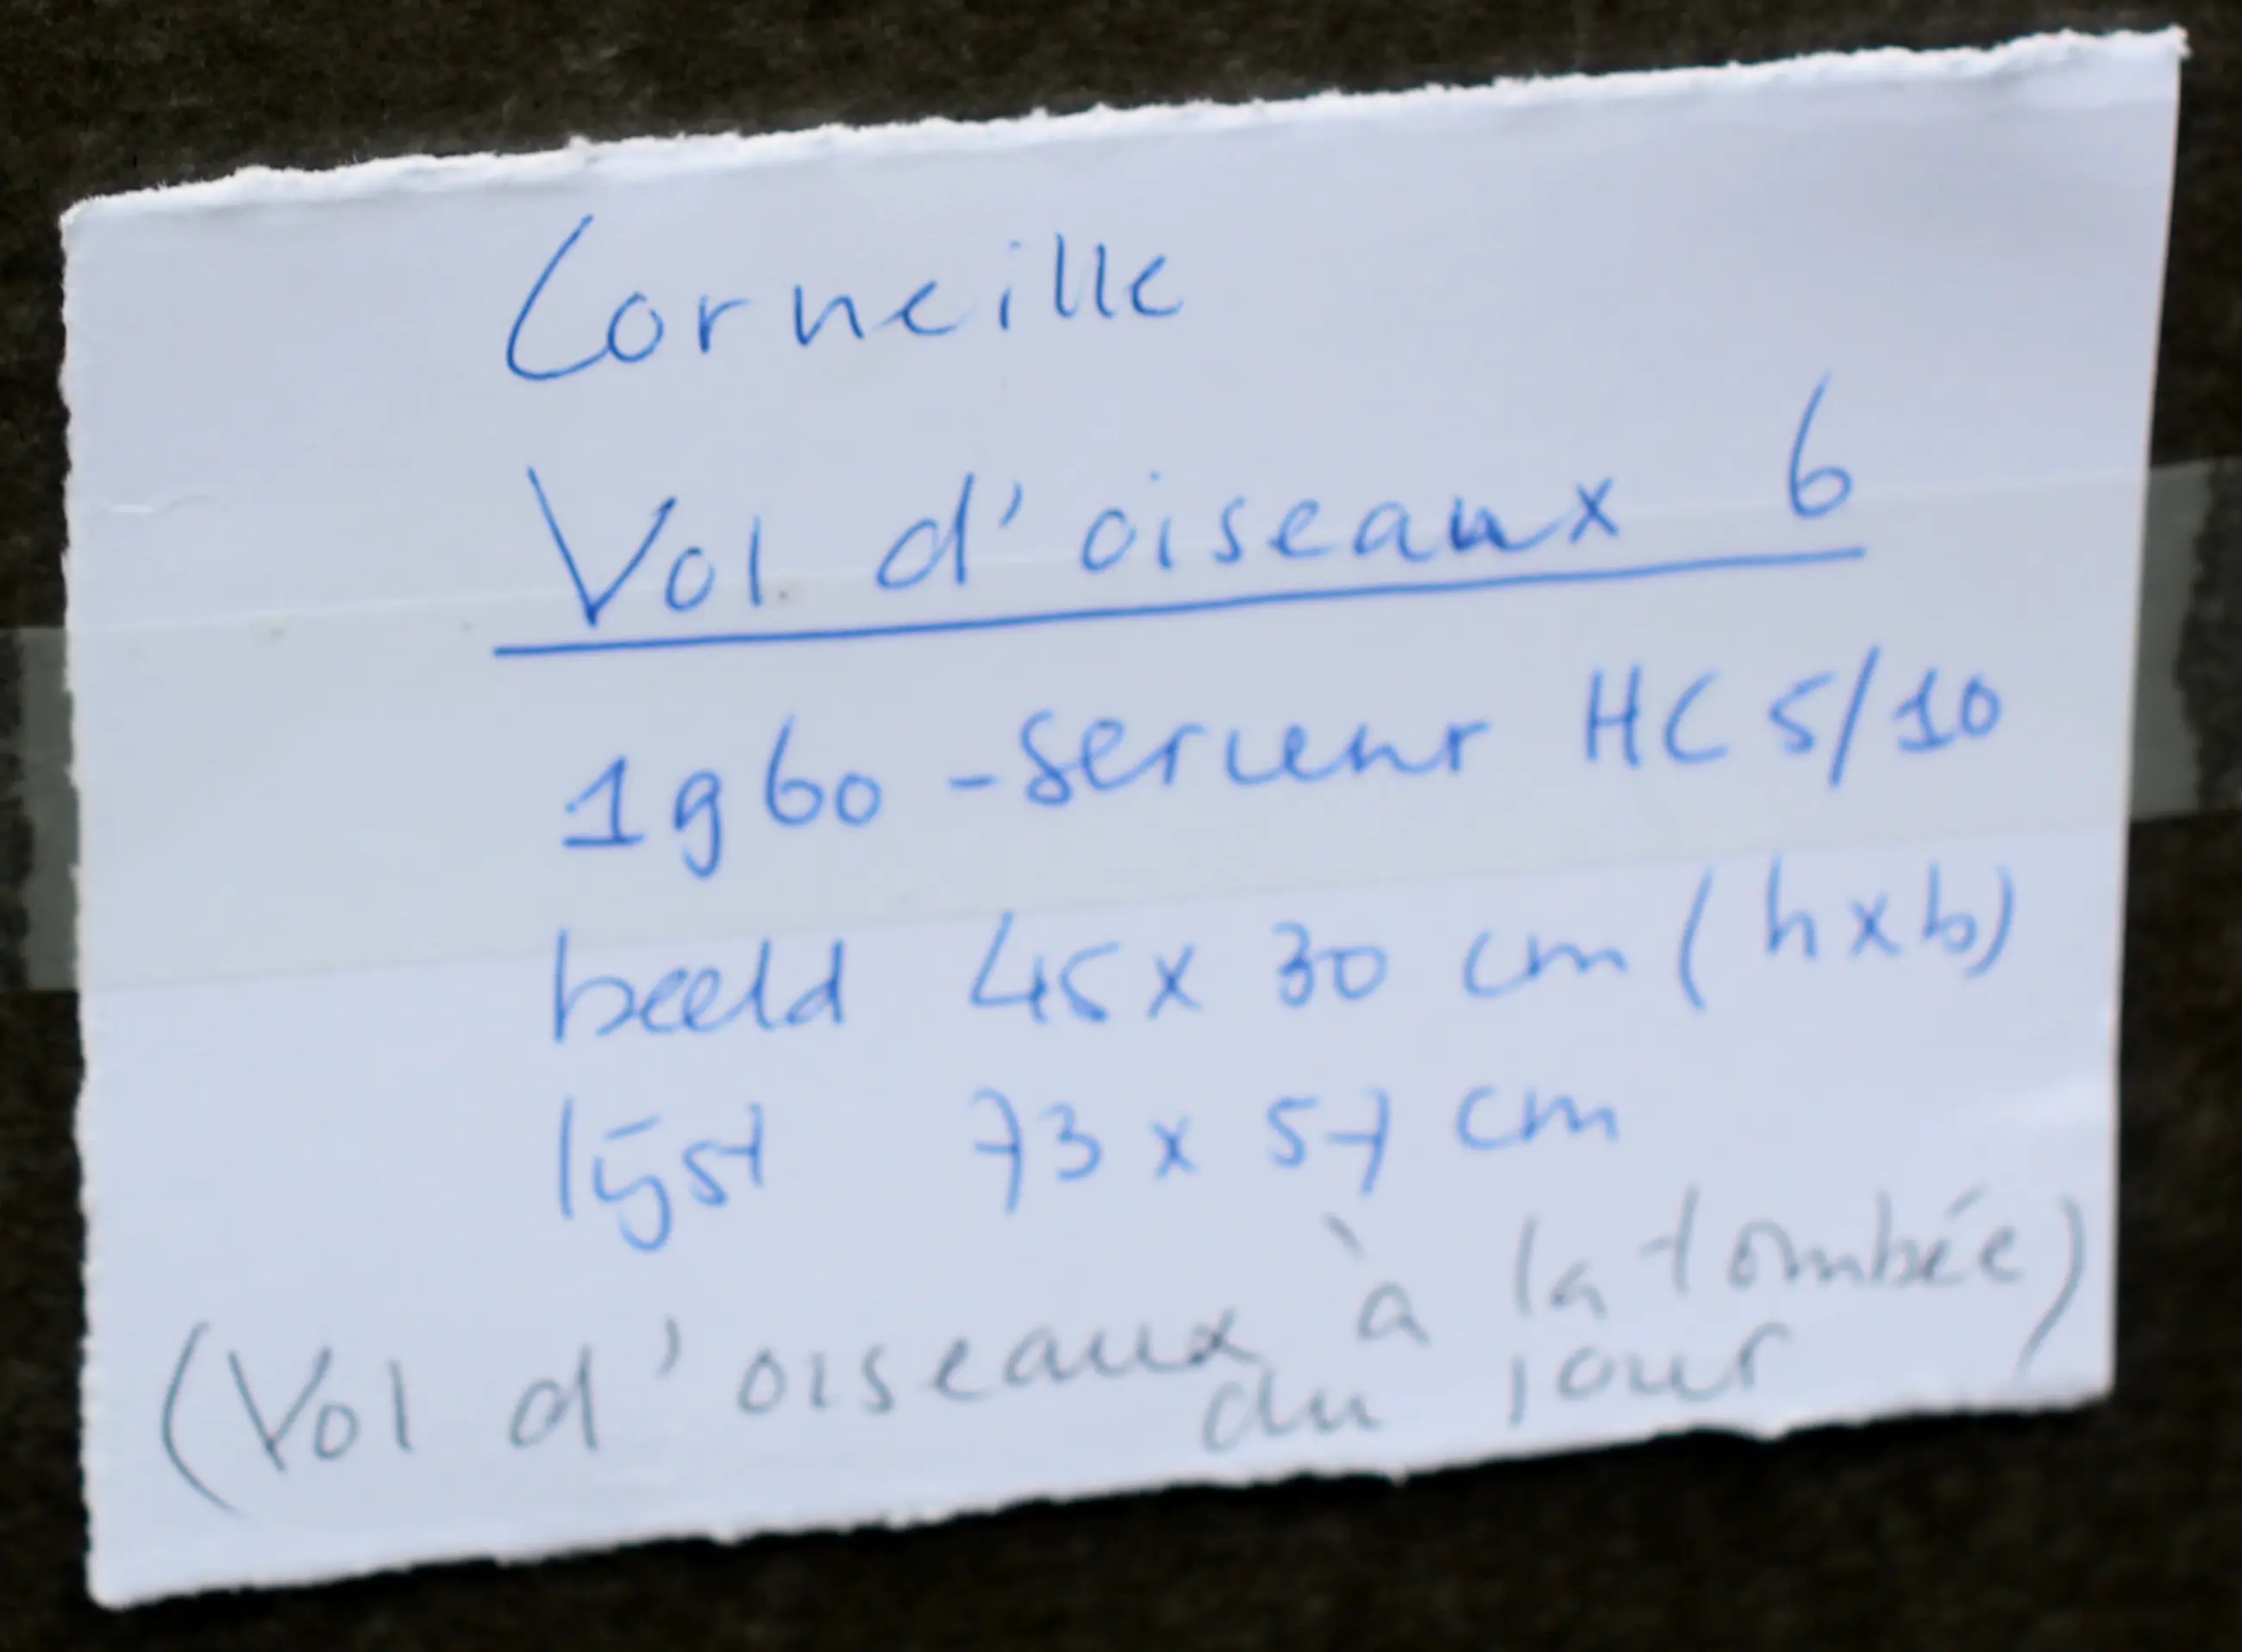 Corneille
Vol d'oiseaux 6
1960 - serieur HC 5/10
beeld 45 x 30 cm (hxb)
lijst 73 x 57 cm
(Vol d'oiseaux à la tombée
du jour)